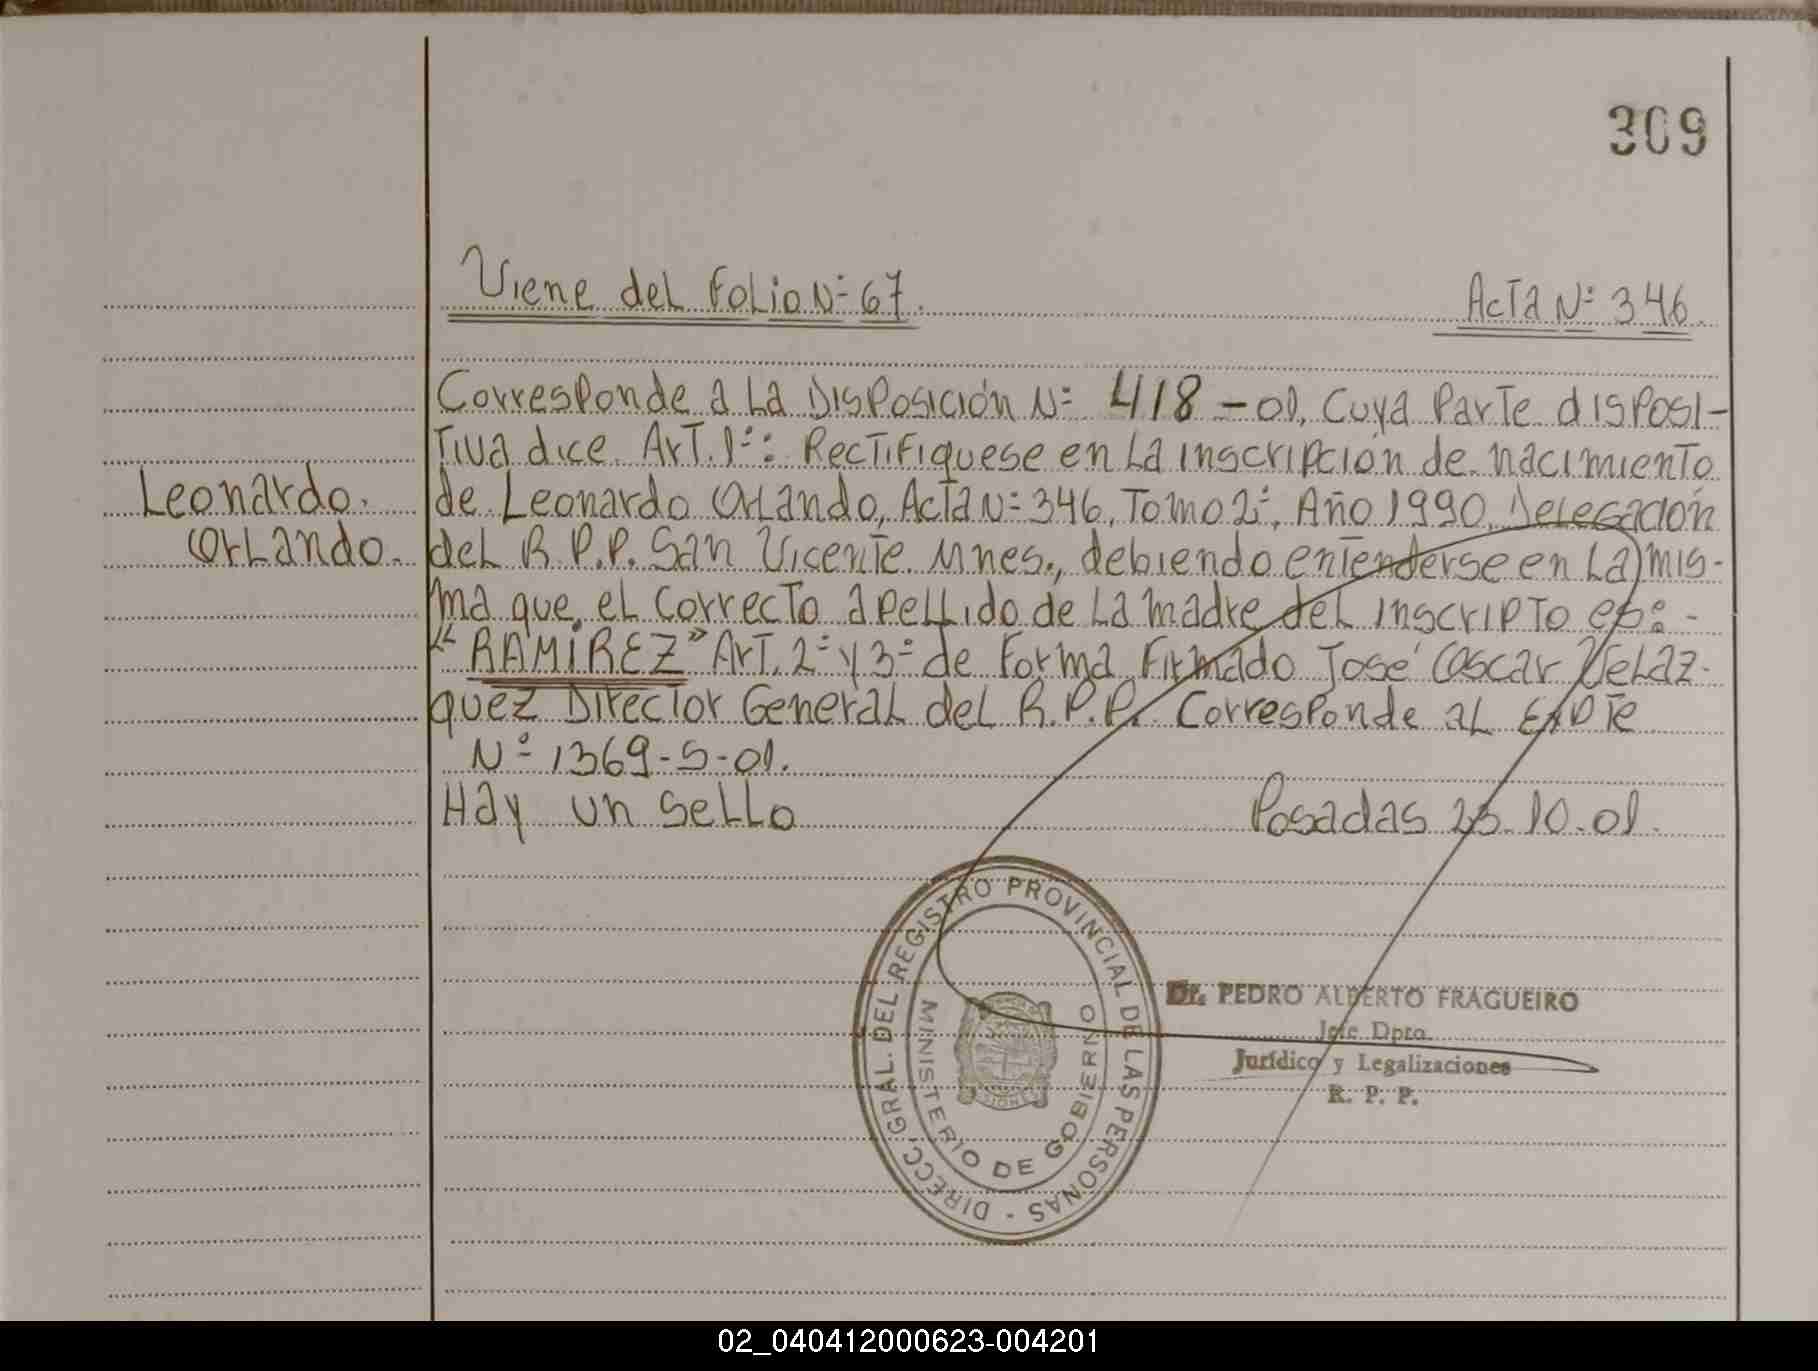 309
Viene del Folio Nº 67. Acta Nº 346.
Corresponde a la Disposición Nº 418-01, Cuya Parte disposi-
tiva dice Art. 1º: Rectifiquese en la inscripción de nacimiento
Leonardo. de Leonardo Orlando, Acta Nº 346, Tomo 2º, Año 1990, Delegación
Orlando. del R.P.P. San Vicente Mnes., debiendo entenderse en la mis-
ma que el correcto apellido de la madre del inscripto es: -
"RAMIREZ" Art. 2º y 3º de Forma Firmado José Oscar Velaz-
quez Director General del R.P.P. Corresponde al EXPTE
Nº 1369-S-01.
Hay un sello Posadas 23.10.01.
DIRECC. GRAL. DEL REGISTRO PROVINCIAL DE LAS PERSONAS -
MINISTERIO DE GOBIERNO
Dr. PEDRO ALBERTO FRAGUEIRO
Jefe Dpto.
Jurídico y Legalizaciones
R. P. P.
02_040412000623-004201